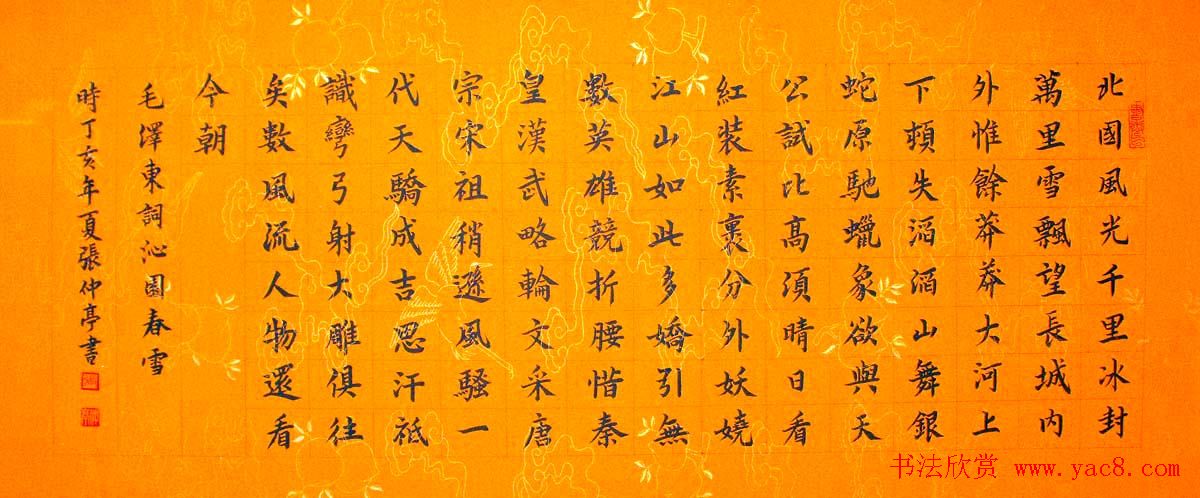 北國風光千里冰封
萬里雪飄望長城内
外惟餘莽莽大河上
下頓失滔滔山舞銀
蛇原馳蠟象欲與天
公試比高須晴日看
紅裝素裹分外妖嬈
江山如此多嬌引無
數英雄競折腰惜秦
皇漢武略輸文采唐
宗宋祖稍遜風騷一
代天驕成吉思汗祗
識彎弓射大雕俱往
矣數風流人物還看
今朝
毛澤東詞沁園春雪
時丁亥年夏張仲亭書
书法欣赏 www.yac8.com